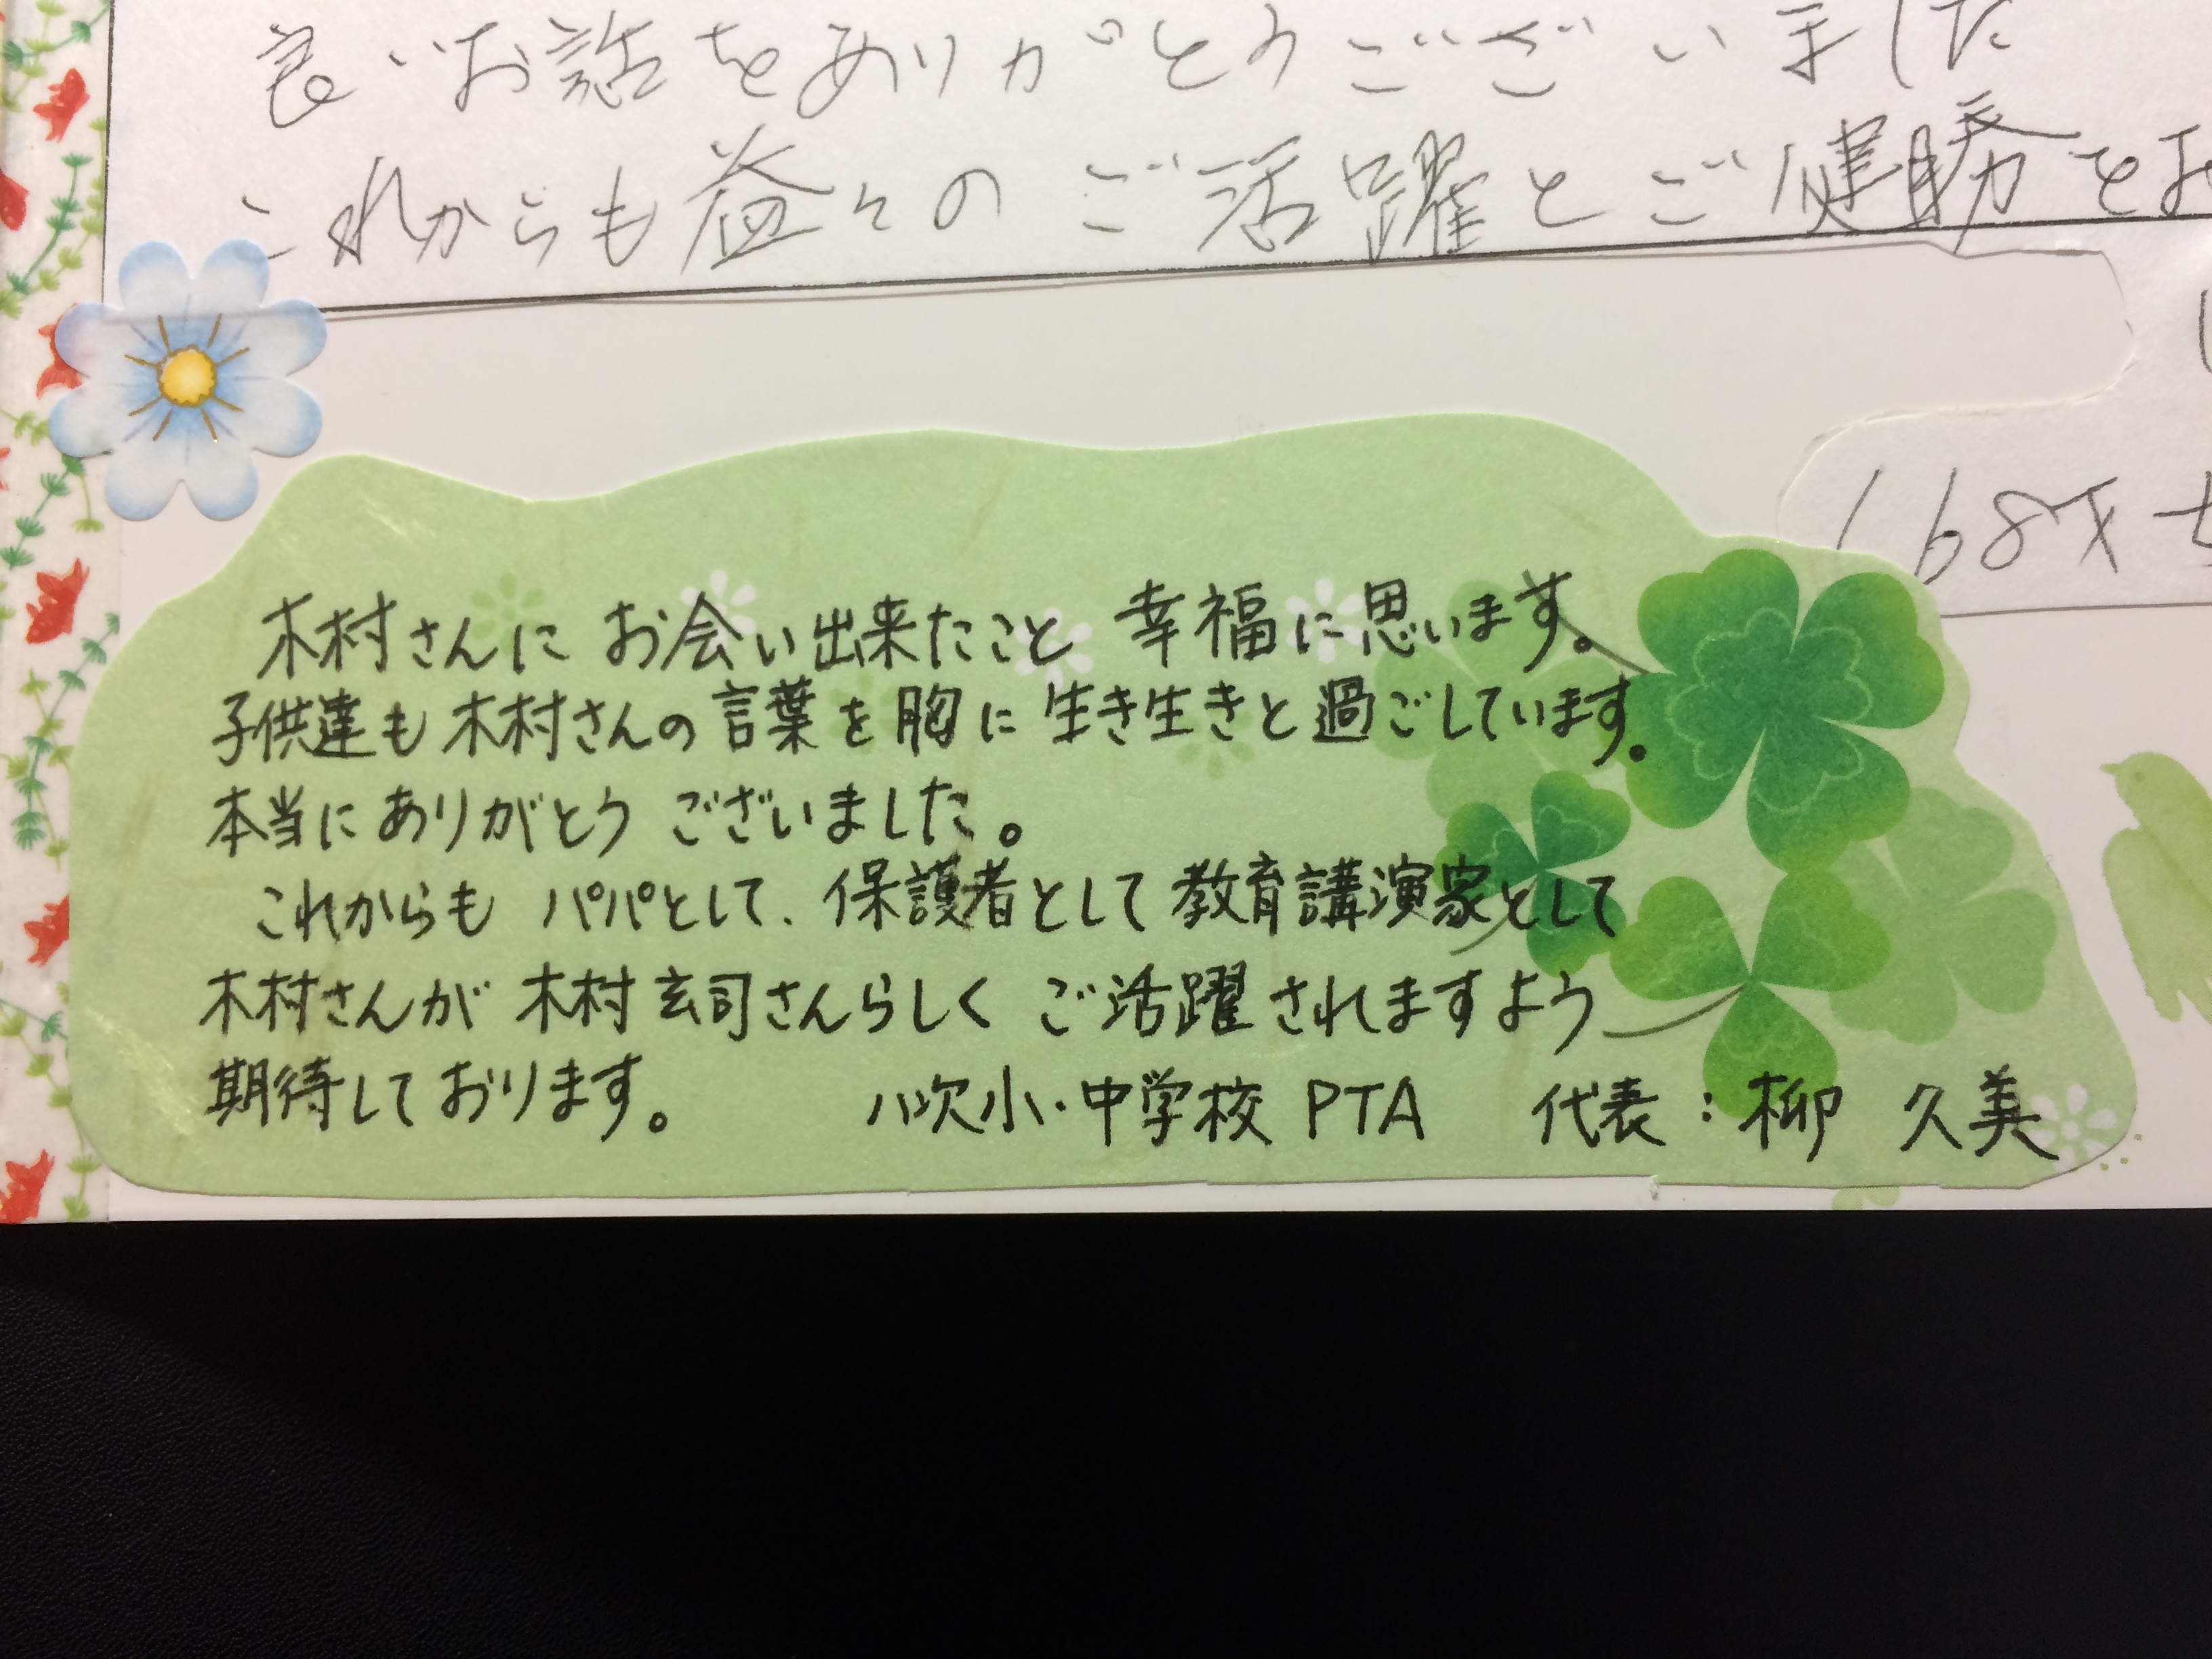 良いお話をありがとうございました
これからも益々のご活躍とご健勝をお
168
木村さんに お会い出来たこと 幸福に思います。
子供達も木村さんの言葉を胸に生き生きと過ごしています。
本当にありがとう ございました。
これからも パパとして、保護者として教育講演家として
木村さんが 木村玄司さんらしく ご活躍されますよう
期待しております。 八吹小・中学校 PTA 代表：柳 久美